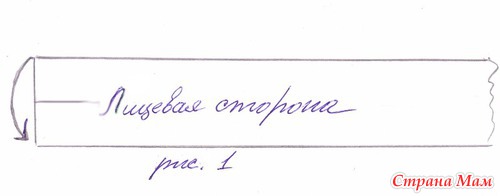 Лицевая сторона
рис. 1
Страна Мам